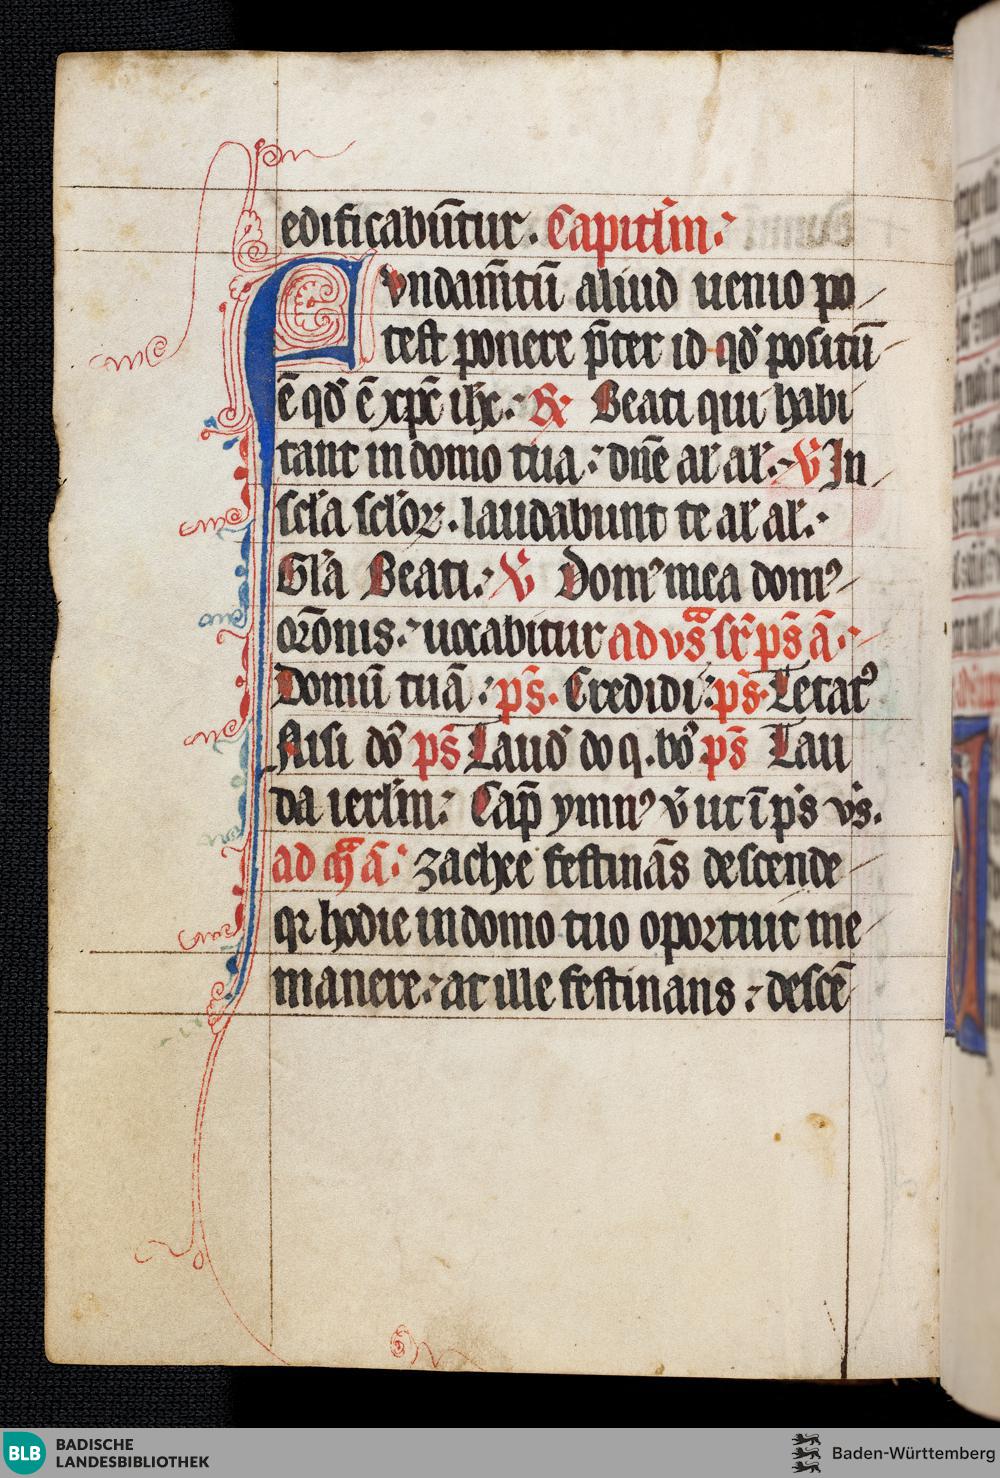 edificabūtur. Capitl̄m:
Fvndam̄tū aliud nemo po
test ponere p̄ter id qd̓ positū
ē qd̓ ē xp̄c ih̄c. R̓ Beati qui habi
tant in domo tua: dn̄e al̓ al̓. V̓ In
scl̓a scl̓oꝝ. laudabunt te al̓ al̓.
Gl̓a Beati. V̓ Domꝰ mea domꝰ
or̄onis. uocabitur ad vs̄ sr̓ ps̄ ā.
Domū tuā: ps̄. Credidi: ps̄. Letatꝰ
Nisi dō ps̄ Laud̓ do q. bō ps̄ Lau
da ierl̓m: Cap̄ ymnꝰ v̓ ut ī p̓s vs̓.
ad m̄ ā: zachee festinās descende
qr hodie in domo tuo oportuit me
manere: at ille festinans: descē
BLB
BADISCHE
LANDESBIBLIOTHEK
Baden-Württemberg